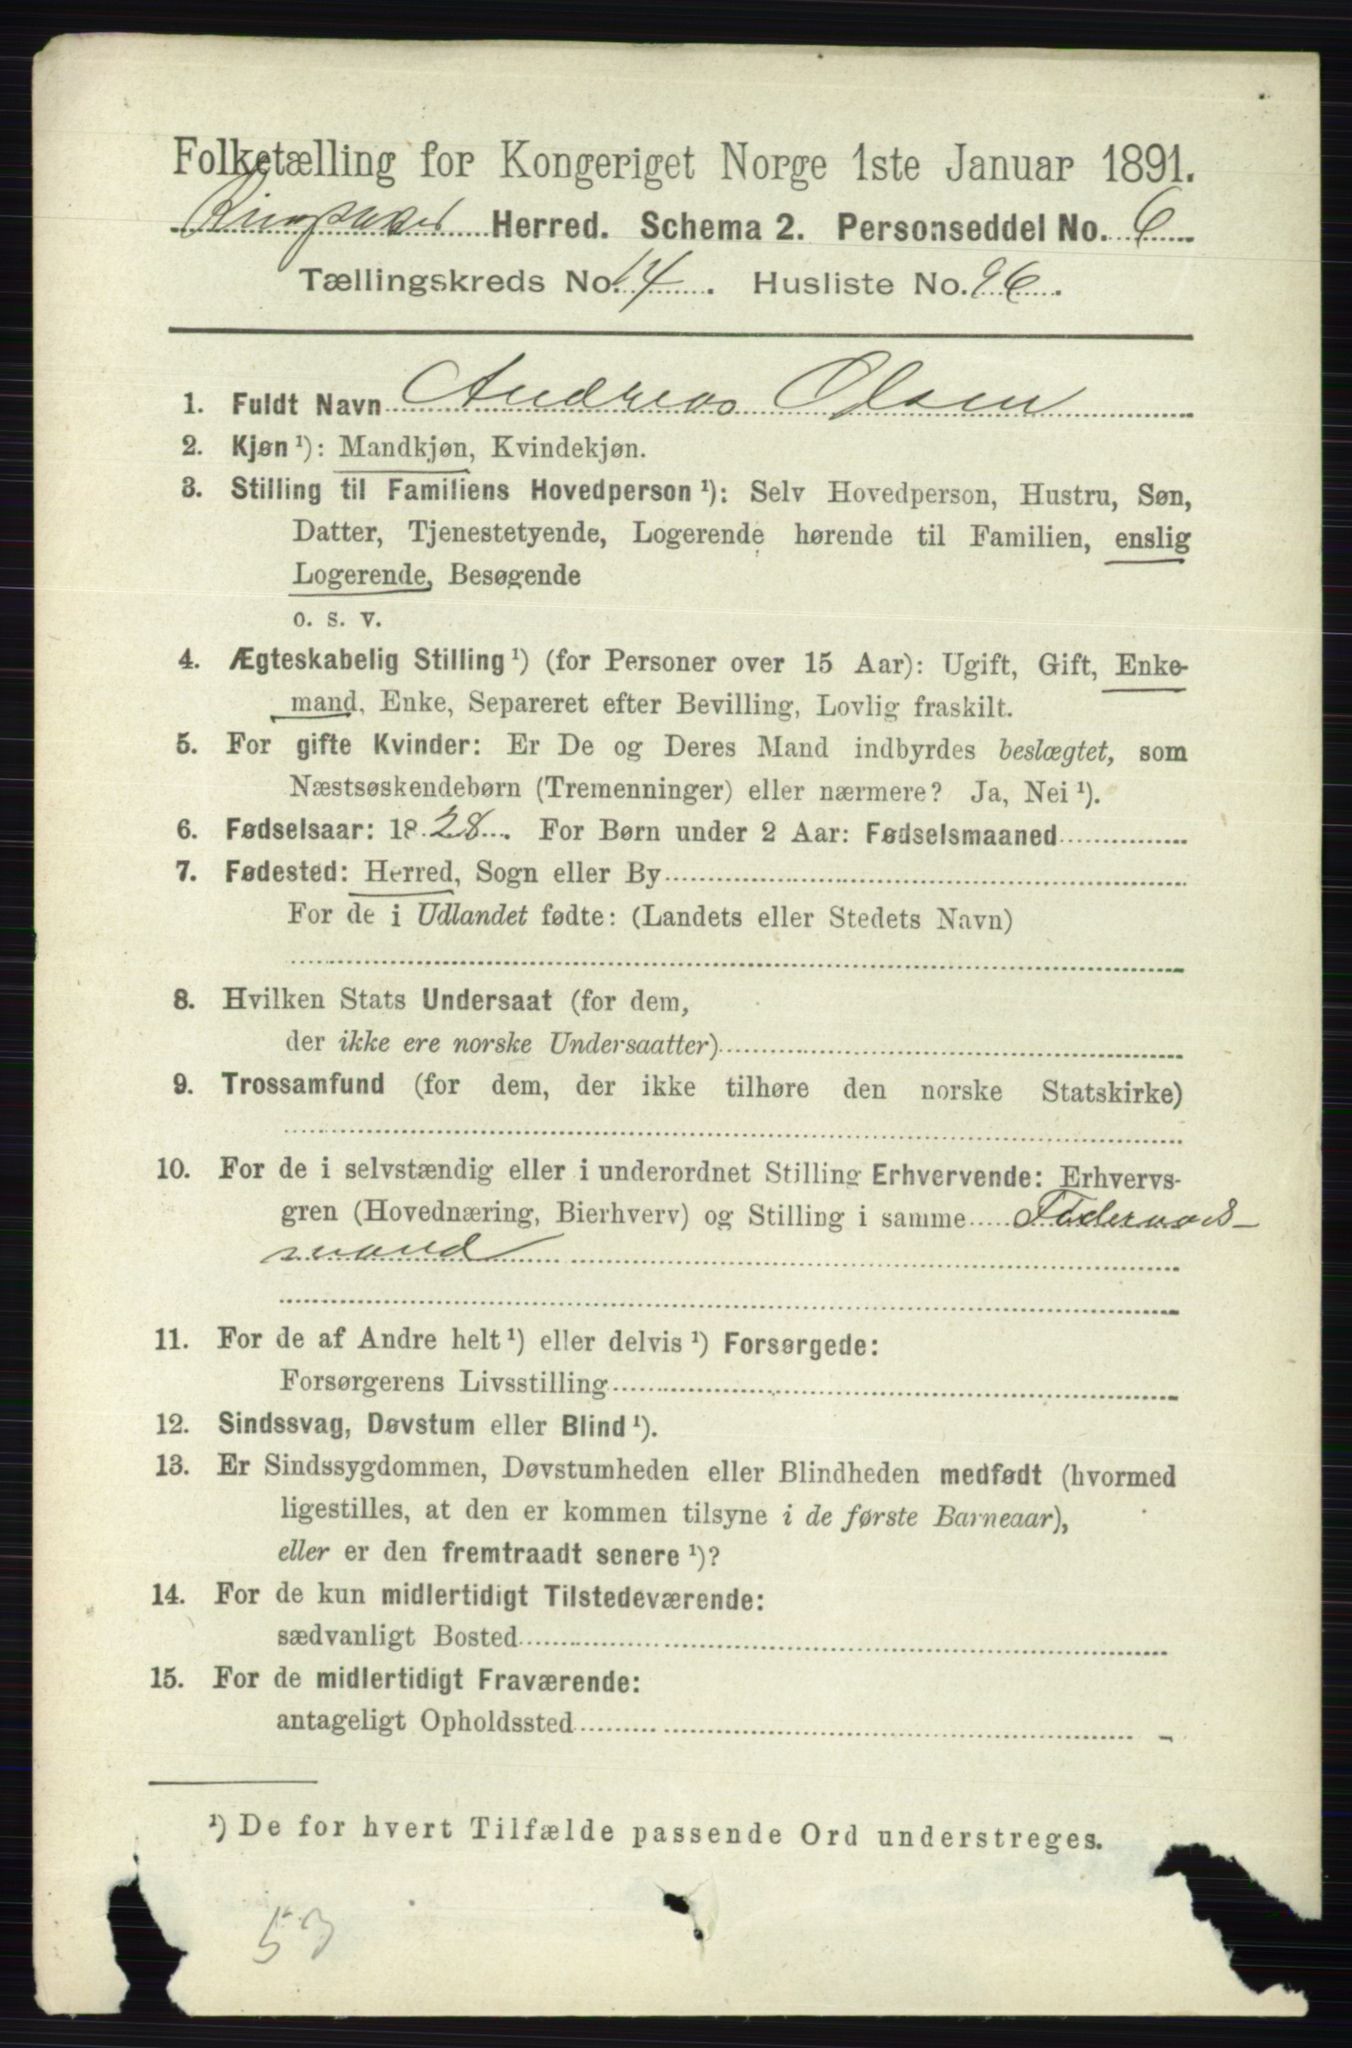 Folketælling for Kongeriget Norge 1ste Januar 1891.
Ringsaker Herred. Schema 2. Personseddel No. 6
Tællingskreds No. 14. Husliste No. 96.
1. Fuldt Navn Andreas Olsen
2. Kjøn ¹): Mandkjøn, Kvindekjøn.
3. Stilling til Familiens Hovedperson ¹): Selv Hovedperson, Hustru, Søn,
Datter, Tjenestetyende, Logerende hørende til Familien, enslig
Logerende, Besøgende
o. s. v.
4. Ægteskabelig Stilling ¹) (for Personer over 15 Aar): Ugift, Gift, Enke-
mand, Enke, Separeret efter Bevilling, Lovlig fraskilt.
5. For gifte Kvinder: Er De og Deres Mand indbyrdes beslægtet, som
Næstsøskendebørn (Tremenninger) eller nærmere? Ja, Nei ¹).
6. Fødselsaar: 1828. For Børn under 2 Aar: Fødselsmaaned
7. Fødested: Herred, Sogn eller By
For de i Udlandet fødte: (Landets eller Stedets Navn)
8. Hvilken Stats Undersaat (for dem,
der ikke ere norske Undersaatter)
9. Trossamfund (for dem, der ikke tilhøre den norske Statskirke)
10. For de i selvstændig eller i underordnet Stilling Erhvervende: Erhvervs-
gren (Hovednæring, Bierhverv) og Stilling i samme Föderaads-
mand
11. For de af Andre helt ¹) eller delvis ¹) Forsørgede:
Forsørgerens Livsstilling
12. Sindssvag, Døvstum eller Blind ¹).
13. Er Sindssygdommen, Døvstumheden eller Blindheden medfødt (hvormed
ligestilles, at den er kommen tilsyne i de første Barneaar),
eller er den fremtraadt senere ¹)?
14. For de kun midlertidigt Tilstedeværende:
sædvanligt Bosted
15. For de midlertidigt Fraværende:
antageligt Opholdssted
¹) De for hvert Tilfælde passende Ord understreges.
53